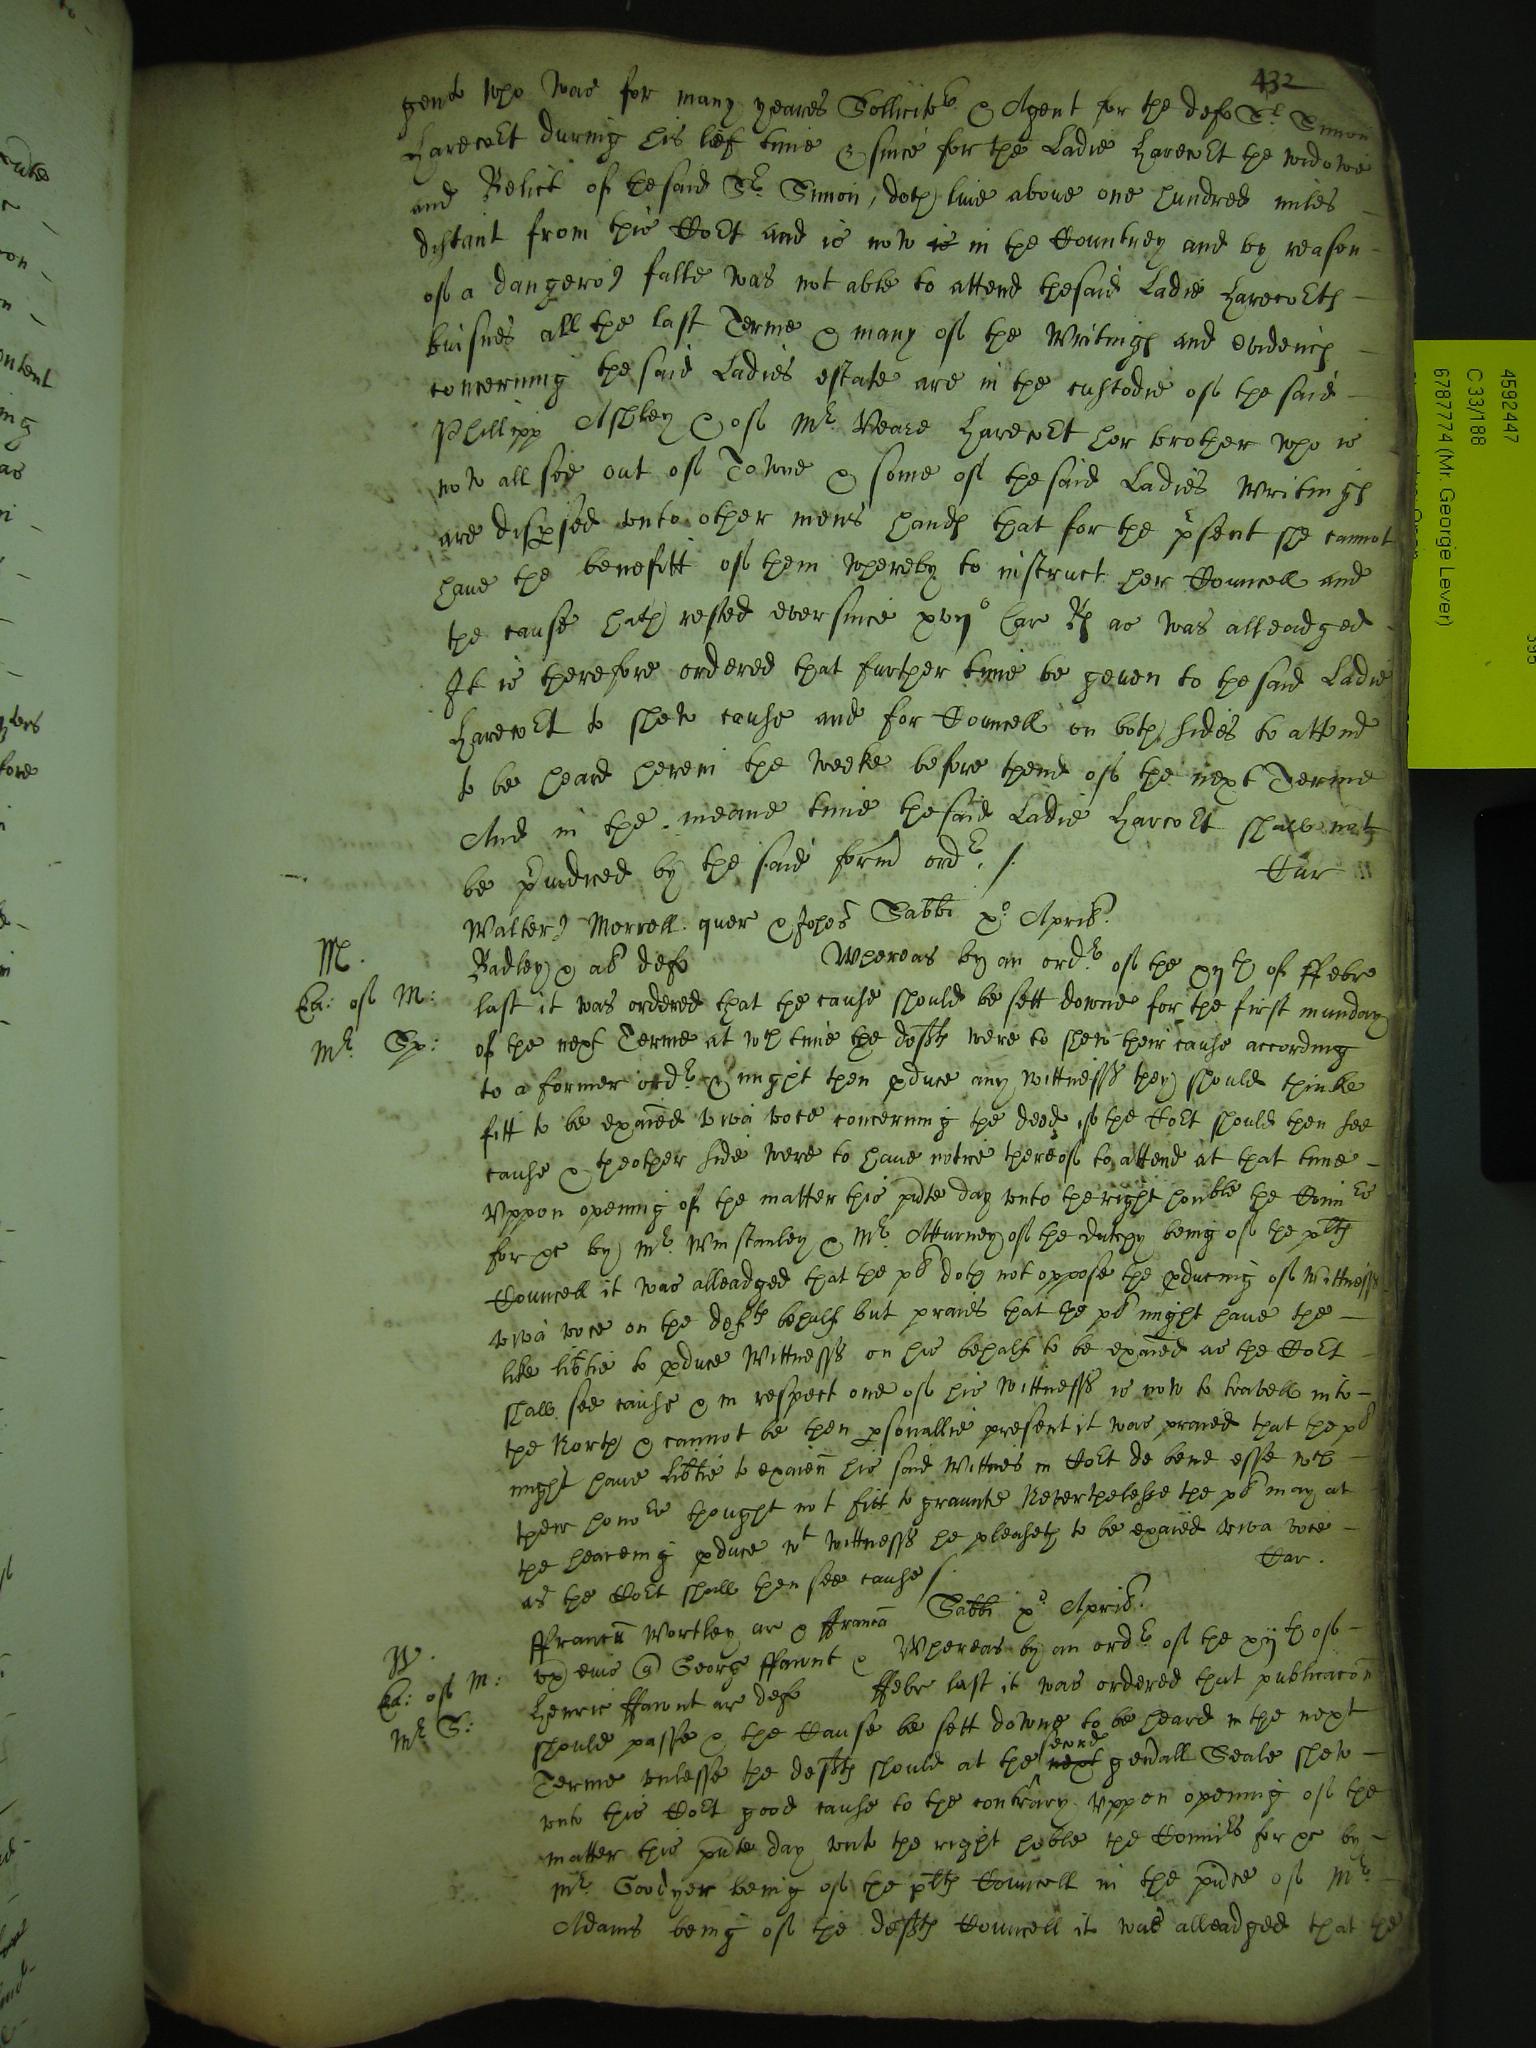 432
gent who was for many yeares Sollicitor & Agent for the defte Sr Simon
Harecort during his lief time & since for the Ladie Harecort the widowe
and Relict of the said Sr Simon, doth live above one hundred miles
distant from this Cort and is now is in the Countrey and by reason
of a dangerous falle was not able to attend the said Ladie Harecorts
buisnes all the last Terme & many of the writings and evidences
concerning the said Ladies estate are in the custodie of the said
Phillipp Ashley & of Mr Veare Harecort her brother who is
now allsoe out of Towne & some of the said Ladies writings
are dispsed unto other mens hands that for the psent she cannot
have the benefitt of them whereby to instruct her Councell and
the cause hath rested ever since xvijo Car Rs as was alleadged
It is therefore ordered that further time be geven to the said Ladie
Harecort to shew cause and for Councell on both sides to attend
to be heard herein the weeke before thend of the next Terme
And in the meane time the said Ladie Harcort shall not
be piudiced by the said form ordr. /.
Walterus Morrell quer & Johes Sabbti xo Aprill
M.
Badley & al defte Whereas by an ordr of the xijth of ffebr
Ex: of M:
last it was ordered that the cause should be sett downe for the first munday
Mr Sp:
of the next Terme at wch time the defts were to shew their cause according
to a former ordr & might then pduce any wittnesses they should thinke
fitt to be exaied viva voce concerning the deed if the Cort should then see
cause & theother side were to have notice thereof to attend at that time
Uppon opening of the matter this pnte day unto the right honble the Comrs
for &c by Mr Winstanley & Mr Atturney of the dutchy being of the plts
Councell it was alleadged that the pl doth not oppose the pducing of wittnesses
viva voce on the defts behalf but praies that the pl might have the
like libtie to pduce wittnesses on his behalf to be exaied as the Cort
shall see cause & in respect one of his wittnesses is now to travell into
the North & cannot be then psonallie present it was praied that the pl
might have libtie to exaien his said wittnes in Cort de bene esse wch
their honors thought not fitt to graunte Neverthelesse the pl may at
the heareing pduce wt wittnesses he pleaseth to be exaied viva voce
as the Cort shall then see cause /.
ffrancus Wortley ar & ffranca Sabbti xo Aprill
W.
ux eius Georg ffawnt & Whereas by an ordr of the xijth of
Ex: of M:
Henric ffawnt ar defte ffebr last it was ordered that publicacon
Mr S:
should passe & the Cause be sett downe to be heard in the next
Terme unlesse the defts should at the next second genall Seale shew
unto this Cort good cause to the contrary. Uppon opening of the
matter this pnte day unto the right hoble the Comrs for &c by
Mr Goodyer being of the plts Councell in the pnce of Mr
Adams being of the defts Councell it was alleadged that the
4592447
C 33/188
6787774 (Mr. George Lever)